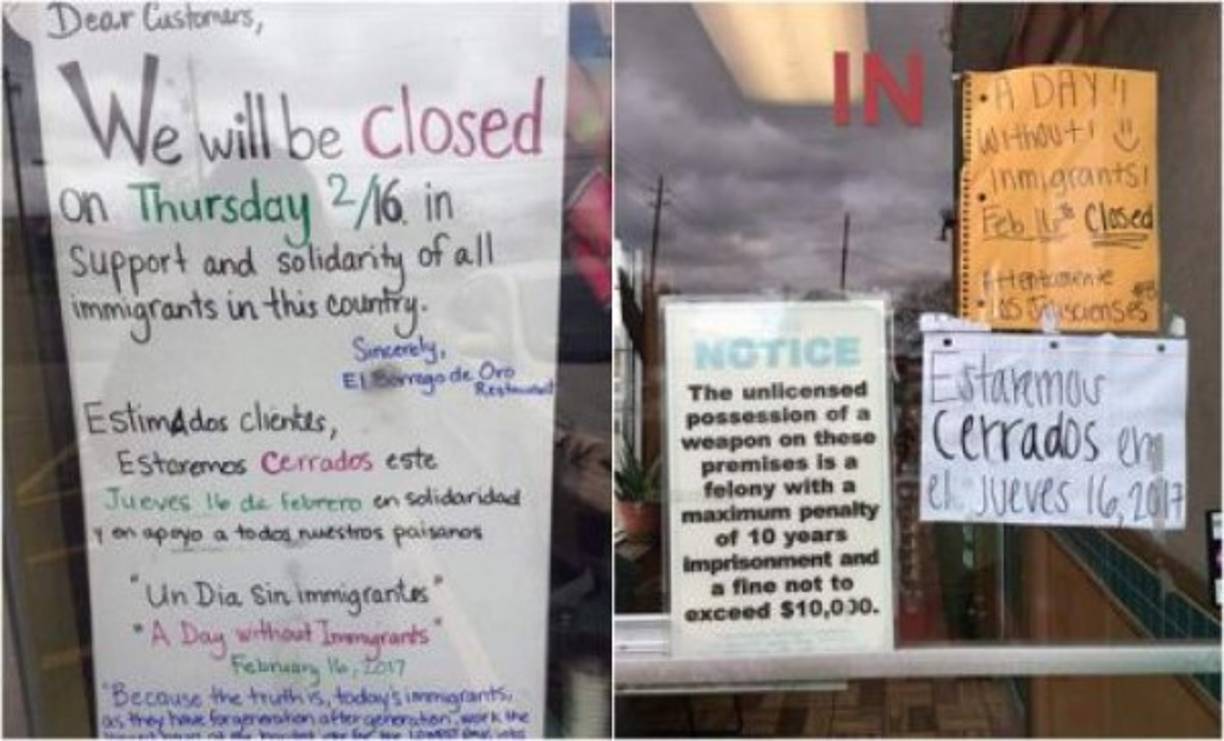 Dear Customers,
We will be closed
on Thursday 2/16. in
Support and solidarity of all
immigrants in this country.
Sincerely,
El Borrego de Oro
Restaurant
Estimados clientes,
Estaremos Cerrados este
Jueves 16 de febrero en solidaridad
y en apoyo a todos nuestros paisanos
"Un Dia Sin immigrantes"
"A Day without Immygrants"
February 16, 2017
"Because the truth is, today's immigrants,
as they have for generation after generation, work the
IN
A DAY!!
without!
inmigrants!
Feb 16th Closed
Attentamente
Los
Estaremos
Cerrados en
el Jueves 16, 2017
NOTICE
The unlicensed
possession of a
weapon on these
premises is a
felony with a
maximum penalty
of 10 years
imprisonment and
a fine not to
exceed $10,000.